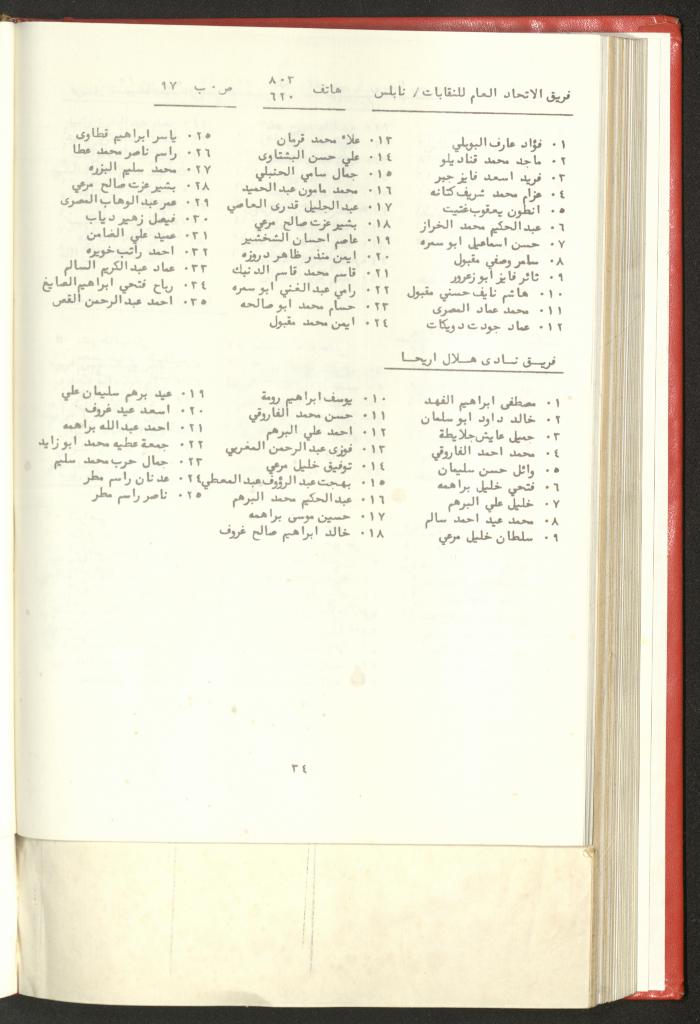 فريق الاتحاد العام للنقابات / نابلس هاتف ٨٠٣ ٦٢٠ ص٠ب ٩٧
٠١ فؤاد عارف البويلي
٠٢ ماجد محمد قناديلو
٠٣ فريد اسعد فايز جبر
٠٤ عزام محمد شريف كتانه
٠٥ انطون يعقوب غتيت
٠٦ عبد الحكيم محمد الخراز
٠٧ حسن اسماعيل ابو سمره
٠٨ سامر وصفي مقبول
٠٩ ثائر فايز ابو زعرور
٠١٠ هاشم نايف حسني مقبول
٠١١ محمد عماد المصرى
٠١٢ عماد جودت دويكات
٠١٣ علاء محمد قرمان
٠١٤ علي حسن البشتاوى
٠١٥ جمال سامي الحنبلي
٠١٦ محمد مامون عبد الحميد
٠١٧ عبد الجليل قدرى العاصي
٠١٨ بشير عزت صالح مرعي
٠١٩ عاصم احسان الشخشير
٠٢٠ ايمن منذر ظاهر دروزه
٠٢١ قاسم محمد قاسم الدنبك
٠٢٢ رامي عبد الغني ابو سمره
٠٢٣ حسام محمد ابو صالحه
٠٢٤ ايمن محمد مقبول
٠٢٥ ياسر ابراهيم قطاوى
٠٢٦ راسم ناصر محمد عطا
٠٢٧ محمد سليم البزره
٠٢٨ بشير عزت صالح مرعي
٠٢٩ عمر عبد الوهاب المصرى
٠٣٠ فيصل زهير دياب
٠٣١ عميد علي الضامن
٠٣٢ احمد راتب خويره
٠٣٣ عماد عبد الكريم السالم
٠٣٤ رباح فتحي ابراهيم الصايغ
٠٣٥ احمد عبد الرحمن القص
فريق نادى هلال اريحا
٠١ مصطفى ابراهيم الفهد
٠٢ خالد داود ابو سلمان
٠٣ جميل عايش جلايطة
٠٤ محمد احمد الفاروقي
٠٥ وائل حسن سليمان
٠٦ فتحي خليل براهمه
٠٧ خليل علي البرهم
٠٨ محمد عيد احمد سالم
٠٩ سلطان خليل مرعي
٠١٠ يوسف ابراهيم رومة
٠١١ حسن محمد الفاروقي
٠١٢ احمد علي البرهم
٠١٣ فوزى عبد الرحمن المغربي
٠١٤ توفيق خليل مرعي
٠١٥ بهجت عبد الرؤوف عبد المعطي
٠١٦ عبد الحكيم محمد البرهم
٠١٧ حسين موسى براهمه
٠١٨ خالد ابراهيم صالح غروف
٠١٩ عيد برهم سليمان علي
٠٢٠ اسعد عيد غروف
٠٢١ احمد عبد الله براهمه
٠٢٢ جمعة عطيه محمد ابو زايد
٠٢٣ جمال حرب محمد سليم
٠٢٤ عدنان راسم مطر
٠٢٥ ناصر راسم مطر
٣٤